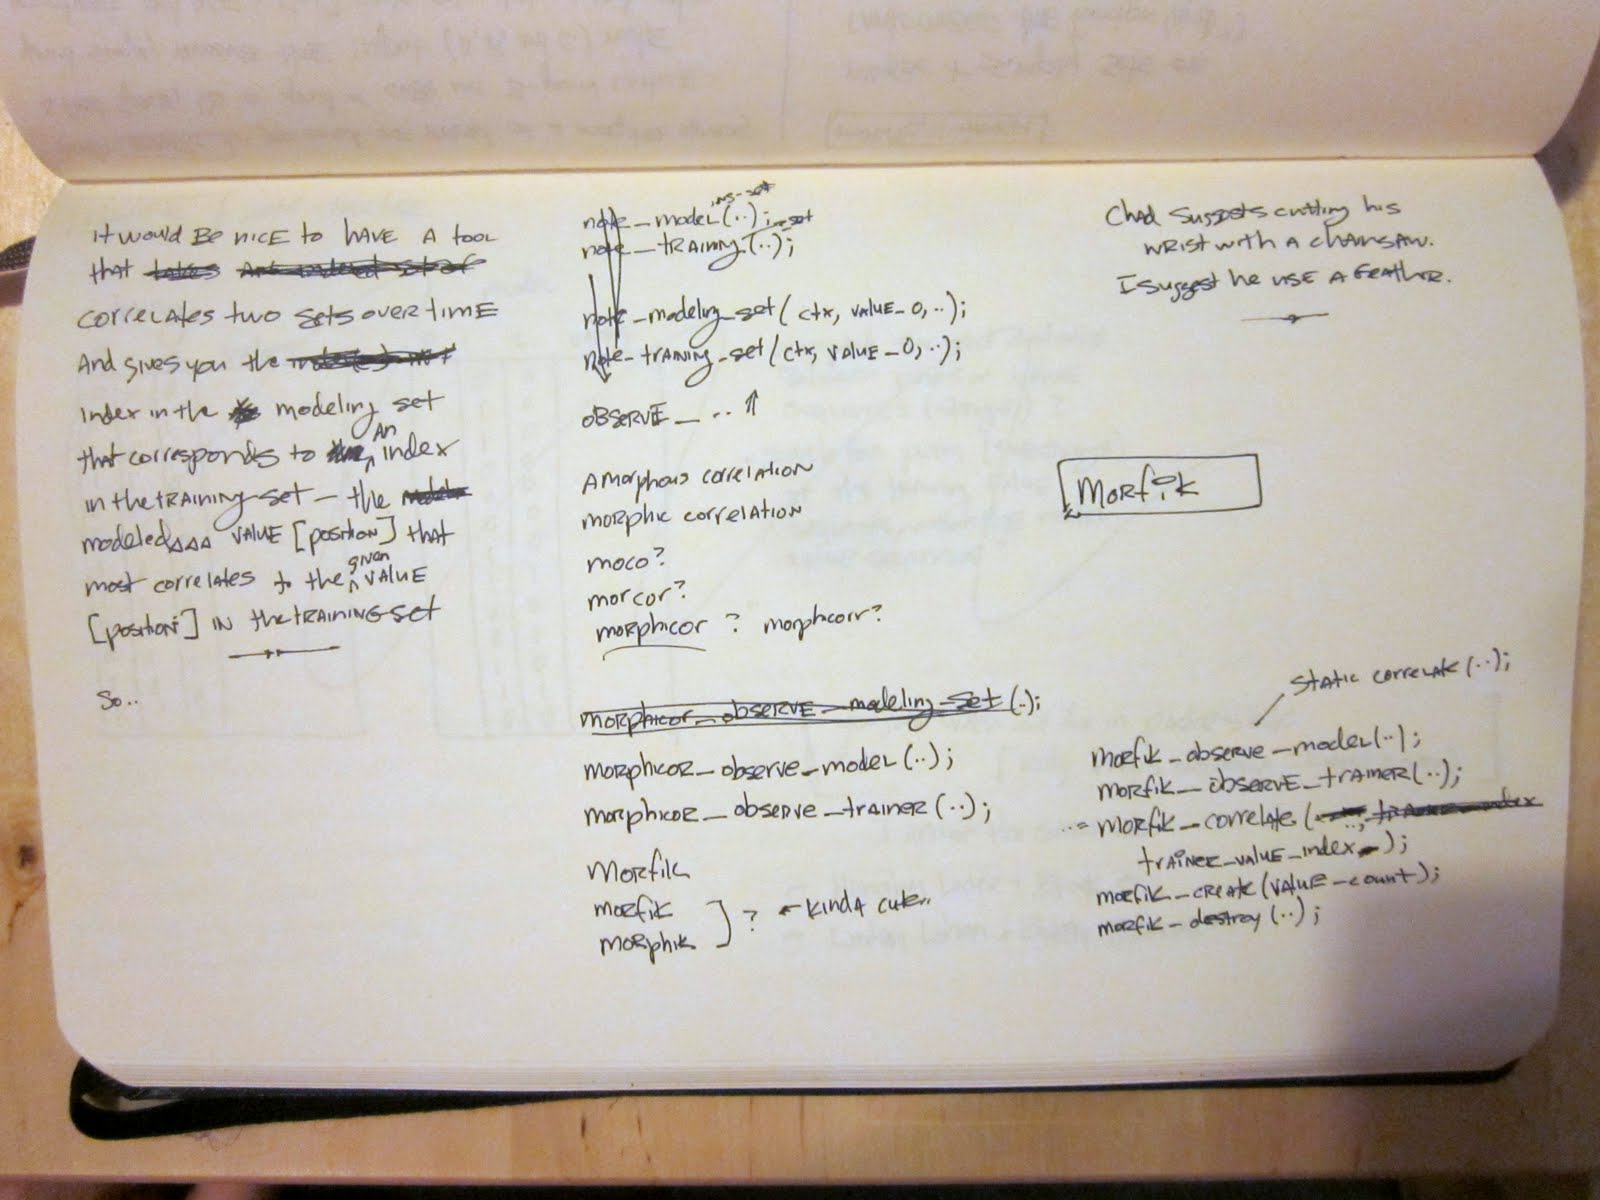 it would be nice to have a tool
that takes an indexed set of
correlates two sets over time
and gives you the
index in the modeling set
that corresponds to an index
in the training set – the
modeled value [position] that
most correlates to the given value
[position] in the training set
So..
note_model(..);
note_training(..);
note_modeling_set(ctx, value_0,..);
note_training_set(ctx, value_0,..);
observe_ .. ↑
amorphous correlation
morphic correlation
moco?
morcor?
morphicor ? morphicorr?
morphicor_observe_modeling_set(..);
morphicor_observe_model(..);
morphicor_observe_trainer(..);
Morfik
morfik
morphik ] ? ← kinda cute..
Chad suggests cutting his
wrist with a chainsaw.
I suggest he use a feather.
Morfik
static correlate(..);
morfik_observe_model(..);
morfik_observe_trainer(..);
..= morfik_correlate(
trainer_value_index);
morfik_create(value_count);
morfik_destroy(..);